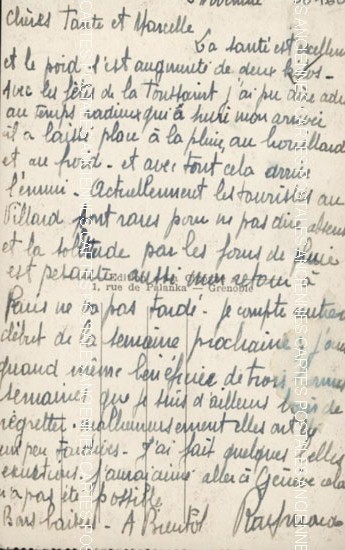 Chères Tante et Marcelle
La santé est excellente
et le poid s'est augmenté de deux kilos -
avec les fêtes de la Toussaint j'ai pu dire adieu
au temps radieux qui a suivi mon arrivée
il a laissé place à la pluie au brouillard
et au froid - et avec tout cela arrive
l'ennui - Actuellement les touristes au
Villard sont rares pour ne pas dire absents
et la solitude par les jours de pluie
est pesante aussi mon retour à
Edition
1, rue de Palanka — Grenoble
Paris ne va pas tarder - je compte rentrer
début de la semaine prochaine - j'aurai
quand même bénéficié de trois bonnes
semaines que je suis d'ailleurs loin de
regretter. malheureusement elles ont été
un peu tardives - J'ai fait quelques belles
excursions. j'aurai aimé aller à Genève cela
n'a pas été possible
Bons baisers - A Bientôt Raymonde
CARTES POSTALES ANCIENNES